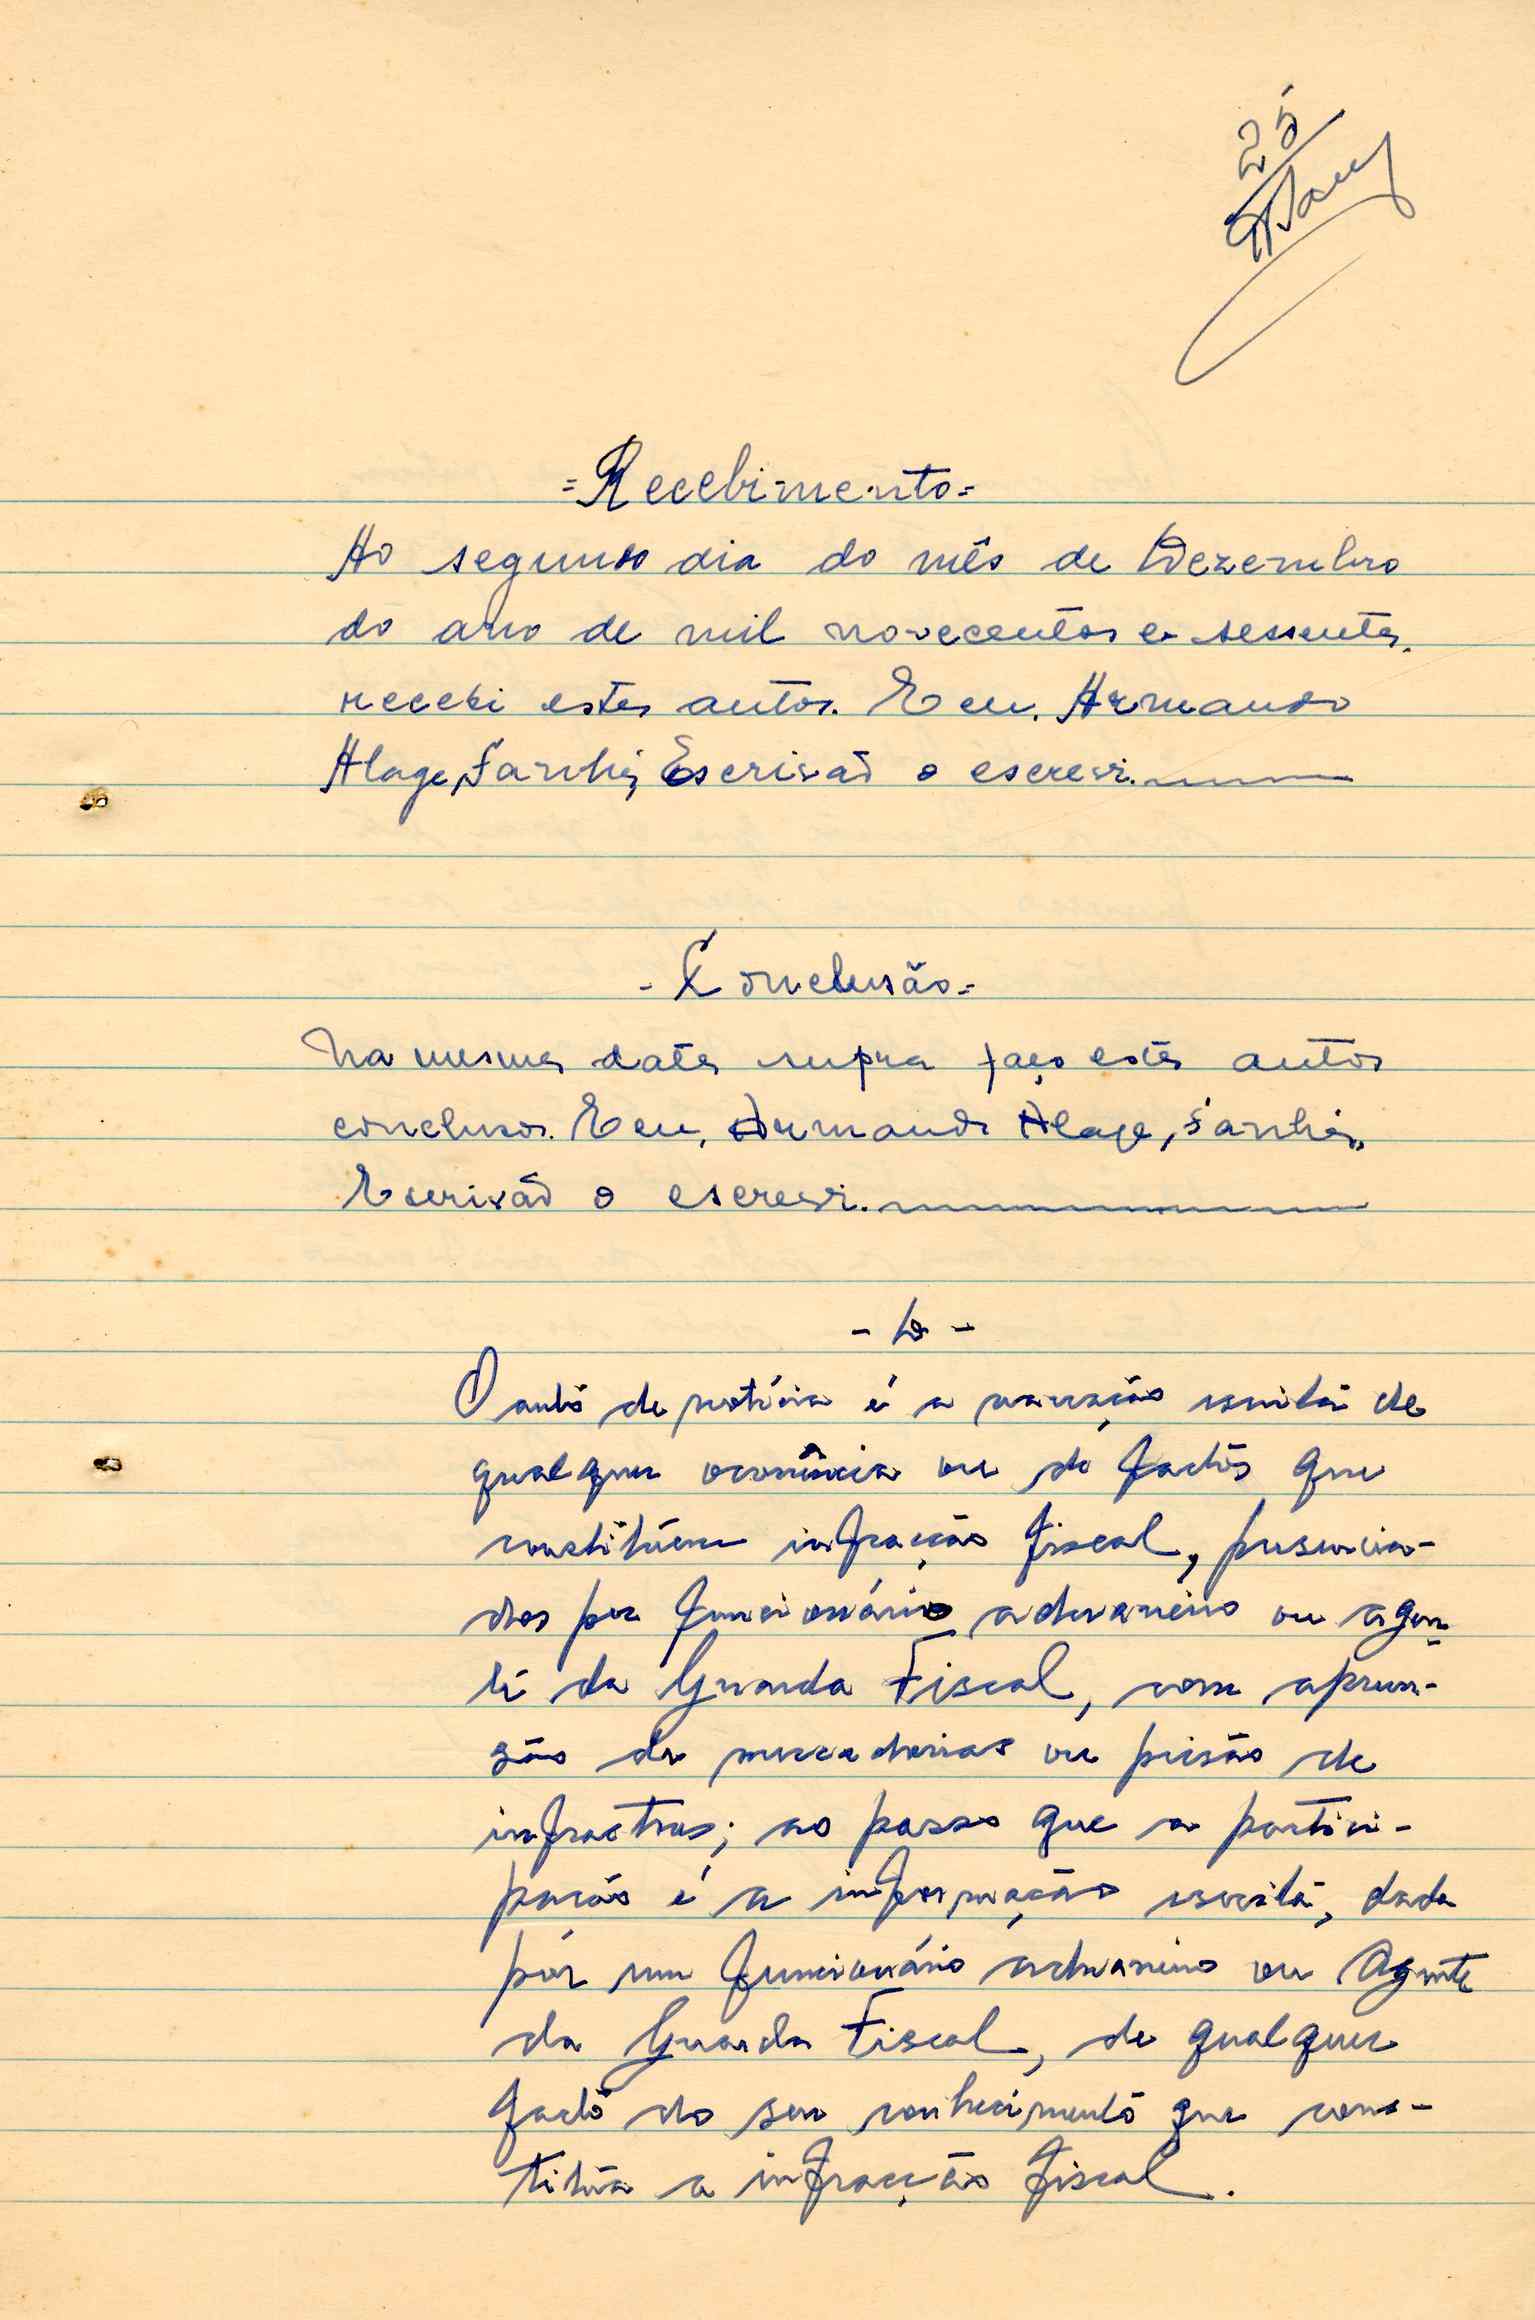 25
=Recebimento=
Ao segundo dia do mês de Dezembro
do ano de mil novecentos e sessenta,
recebi estes autos. E eu, Armando
Alage, Escrivão o escrevi.
-Conclusão=
Na mesma data supra faço estes autos
conclusos. E eu, Armando Alage,
Escrivão o escrevi.
O auto de notícia é a narração escrita de
qualquer ocorrência ou de factos que
constituem infracção fiscal, presencia-
dos por funcionário aduaneiro ou agen-
te da Guarda Fiscal, com apreen-
são de mercadorias ou prisão de
infractores; ao passo que a partici-
pação é a informação escrita, dada
por um funcionário aduaneiro ou Agente
da Guarda Fiscal, de qualquer
facto do seu conhecimento que cons-
titúa a infracção fiscal.